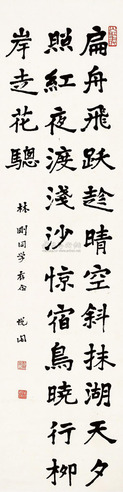 扁舟飛跃趁晴空斜抹湖天夕
照紅夜渡淺沙惊宿鳥曉行柳
岸走花驄
林剛同学存念 悅園